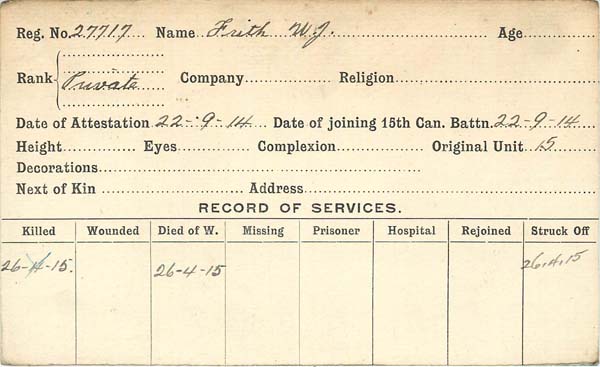 Reg. No. 27717 Name Frith W.J. Age
Rank Private Company Religion
Date of Attestation 22-9-14 Date of joining 15th Can. Battn. 22-9-14
Height Eyes Complexion Original Unit 15
Decorations
Next of Kin Address
RECORD OF SERVICES.
Killed Wounded Died of W. Missing Prisoner Hospital Rejoined Struck Off
26-4-15. 26-4-15 26.4.15